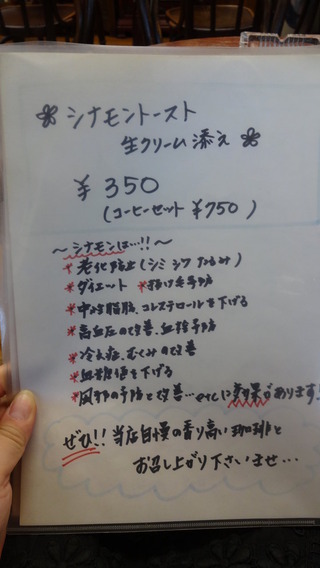 シナモントースト
生クリーム添え
¥350
(コーヒーセット ¥750)
〜シナモンは…!!〜
*老化防止(シミ シワ たるみ)
*ダイエット *抜け毛予防
*中性脂肪、コレステロールを下げる
*高血圧の改善、血栓予防
*冷え症、むくみの改善
*血糖値を下げる
*風邪の予防と改善…etcに効果があります!
ぜひ!! 当店自慢の香り高い珈琲と
お召し上がり下さいませ…